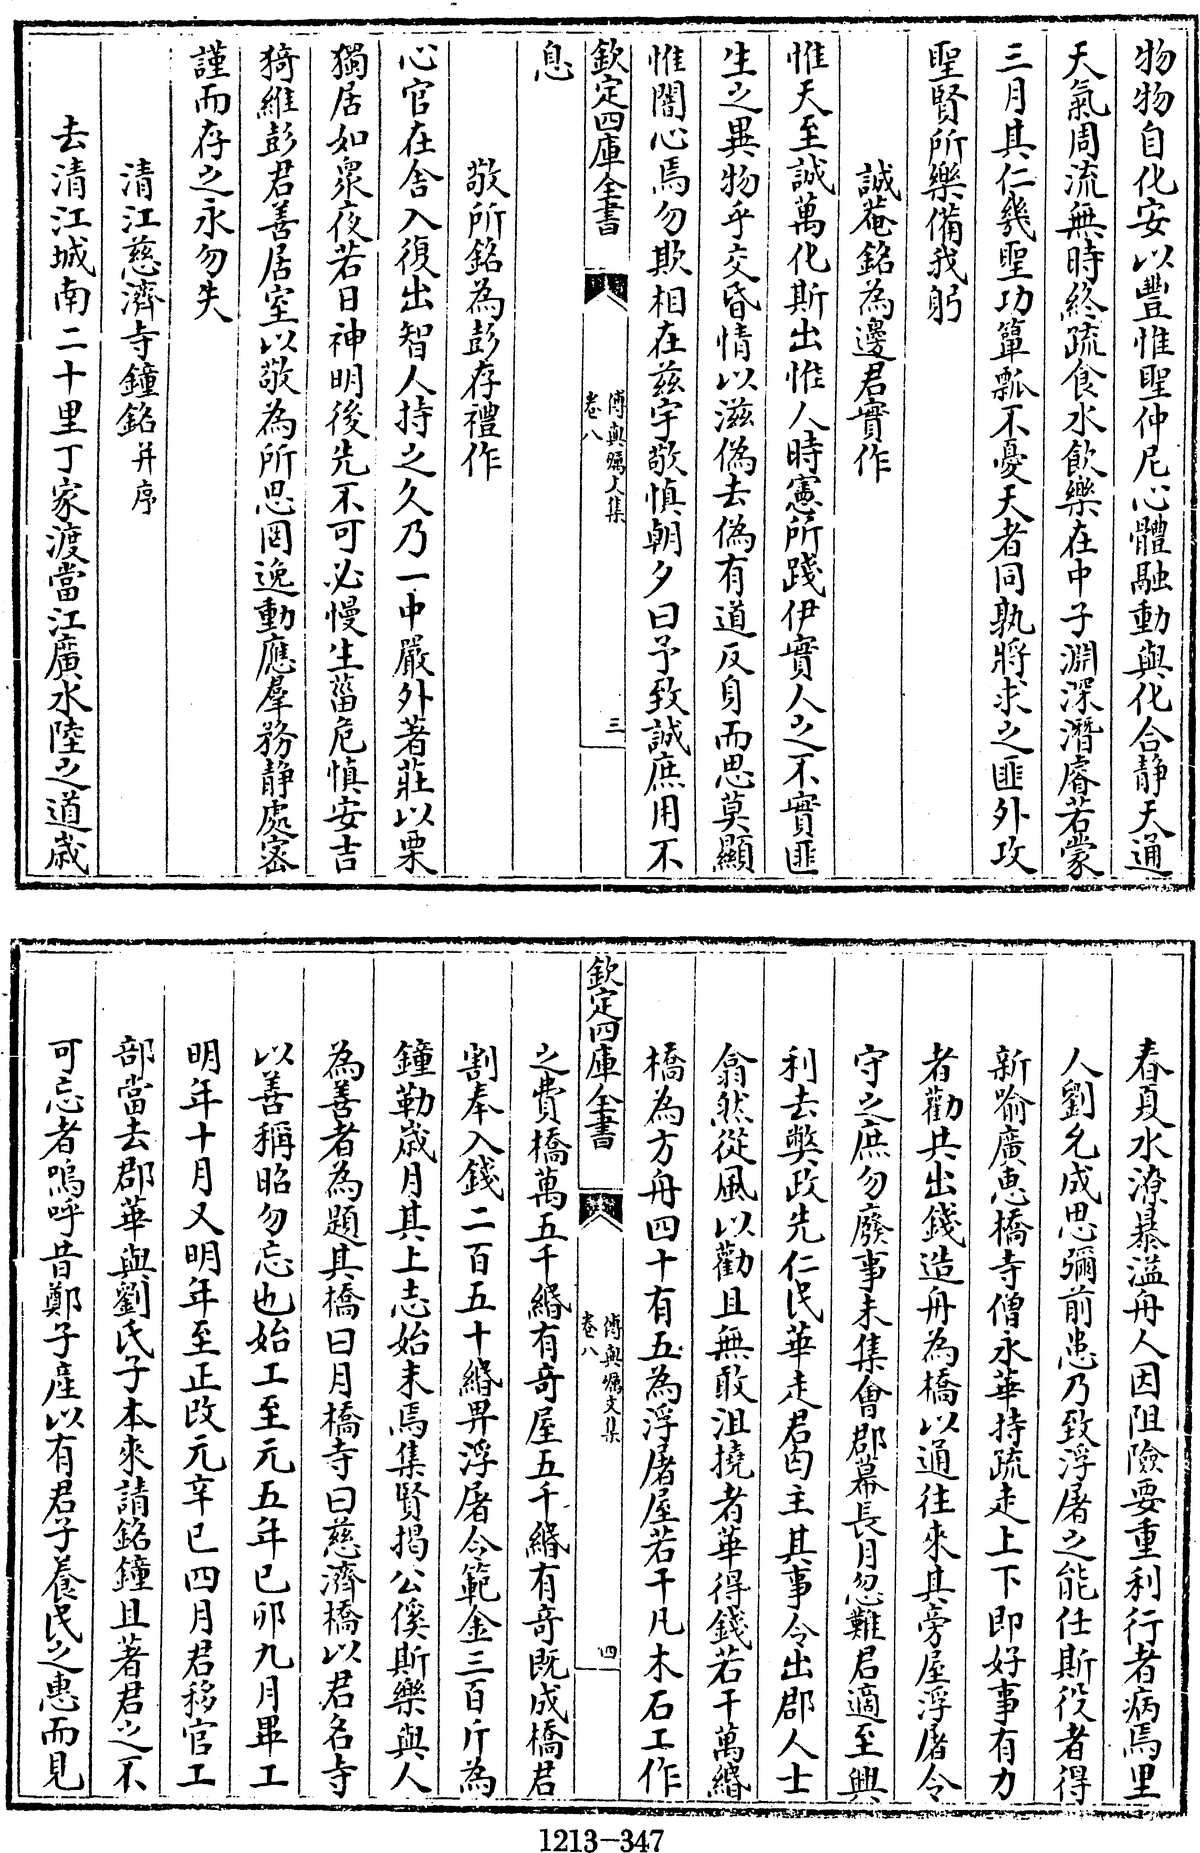 物物自化安以豐惟聖仲尼心體融動與化合静天通
天氣周流無時終疏食水飲樂在中子淵深潛睿若蒙
三月其仁幾聖功簞瓢不憂天者同孰將求之匪外攻
聖賢所樂備我躬
誠菴銘為邊君實作
惟天至誠萬化斯出惟人時憲所踐伊實人之不實匪
生之異物乎交昏情以滋偽去偽有道反身而思莫顯
惟闇心焉勿欺相在兹宇敬慎朝夕曰予致誠庶用不
欽定四庫全書
傅與礪文集
卷八
三
息
敬所銘為彭存禮作
心官在舍入復出智人持之久乃一中嚴外著莊以栗
獨居如衆夜若日神明後先不可必慢生菑危慎安吉
猗維彭君善居室以敬為所思罔逸動應羣務静處密
謹而存之永勿失
清江慈濟寺鐘銘并序
去清江城南二十里丁家渡當江廣水陸之道歲
春夏水潦暴溢舟人因阻險要重利行者病焉里
人劉允成思彌前患乃致浮屠之能任斯役者得
新喻廣惠橋寺僧永華持疏走上下即好事有力
者勸共出錢造舟為橋以通往來其旁屋浮屠令
守之庶勿廢事未集會郡幕長月忽難君適至興
利去弊政先仁民華走君白主其事令出郡人士
翕然從風以勸且無敢沮撓者華得錢若干萬緡
橋為方舟四十有五為浮屠屋若干凡木石工作
欽定四庫全書
傅與礪文集
卷八
四
之費橋萬五千緡有奇屋五千緡有奇既成橋君
割奉入錢二百五十緡畀浮屠令範金三百斤為
鐘勒歲月其上志始末焉集賢揭公傒斯樂與人
為善者為題其橋曰月橋寺曰慈濟橋以君名寺
以善稱昭勿忘也始工至元五年己卯九月畢工
明年十月又明年至正改元辛巳四月君移官工
部當去郡華與劉氏子本來請銘鐘且著君之不
可忘者嗚呼昔鄭子産以有君子養民之惠而見
1213-347